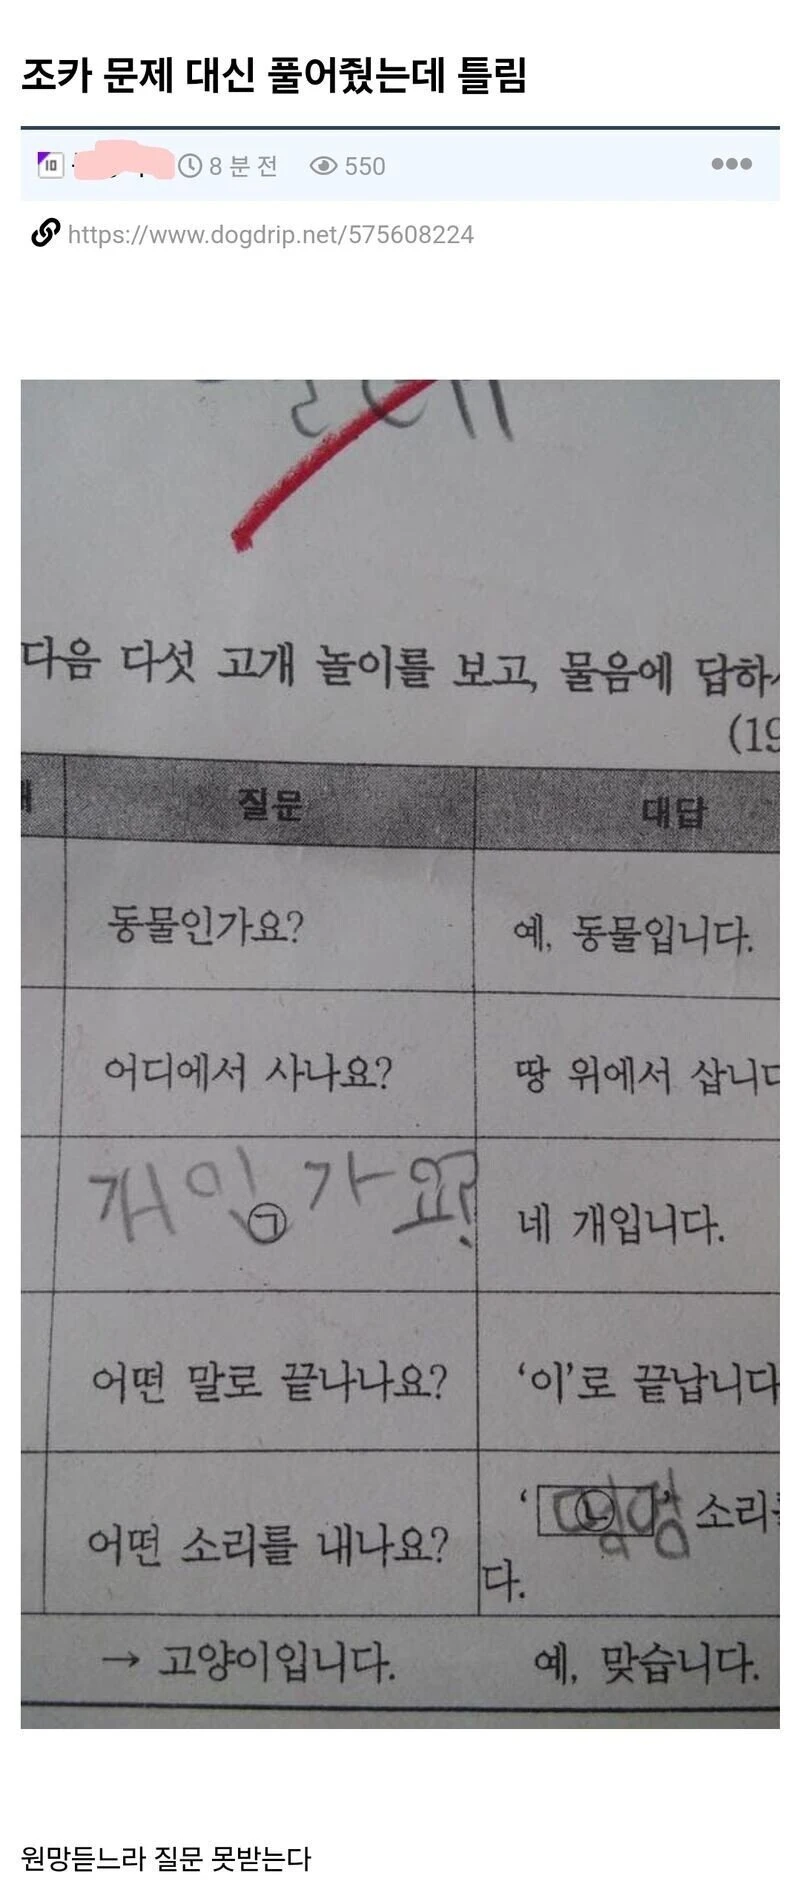 조카 문제 대신 풀어줬는데 틀림
8 분 전 550
https://www.dogdrip.net/575608224
다음 다섯 고개 놀이를 보고, 물음에 답하
(19
질문 대답
동물인가요? 예, 동물입니다.
어디에서 사나요? 땅 위에서 삽니다
개인가요? ㉠ 네 개입니다.
어떤 말로 끝나나요? ‘이’로 끝납니다
어떤 소리를 내나요? ‘㉡ 멍멍’ 소리를
다.
→ 고양이입니다. 예, 맞습니다.
원망듣느라 질문 못받는다